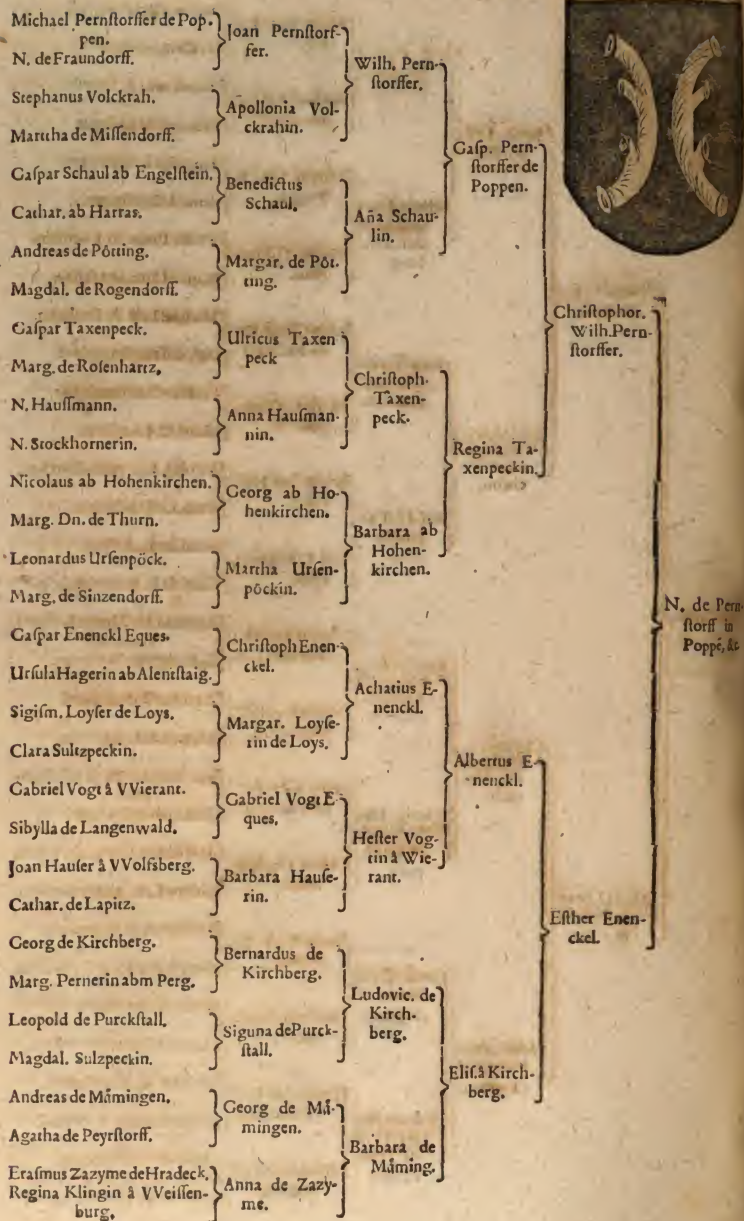 Michael Pernſtorffer de Pop-
pen.
N. de Fraundorff.
Stephanus Volckrah.
Martha de Miſſendorff.
Gaſpar Schaul ab Engelſtein.
Cathar. ab Harras.
Andreas de Pôtting.
Magdal. de Rogendorff.
Gaſpar Taxenpeck.
Marg. de Roſenhartz.
N. Hauſſmann.
N. Stockhornerin.
Nicolaus ab Hohenkirchen.
Marg. Dn. de Thurn.
Leonardus Urſenpöck.
Marg. de Sinzendorff.
Gaſpar Enenckl Eques.
Urſula Hagerin ab Alentſtaig.
Sigiſm. Loyſer de Loys.
Clara Sultzpeckin.
Gabriel Vogt â VVierant.
Sibylla de Langenwald.
Joan Hauſer â VVolfsberg.
Cathar. de Lapitz.
Georg de Kirchberg.
Marg. Pernerin abm Perg.
Leopold de Purckſtall.
Magdal. Sulzpeckin.
Andreas de Måmingen.
Agatha de Peyrſtorff.
Eraſmus Zazyme de Hradeck.
Regina Klingin â VVeiſſen-
burg.
Joan Pernſtorf-
fer.
Apollonia Vol-
ckrahin.
Benedictus
Schaul.
Margar. de Pôt-
ting.
Ulricus Taxen
peck
Anna Hauſman-
nin.
Georg ab Ho-
henkirchen.
Martha Urſen-
pôckin.
Chriſtoph Enen-
ckel.
Margar. Loyſe-
rin de Loys.
Gabriel Vogt E-
ques.
Barbara Hauſe-
rin.
Bernardus de
Kirchberg.
Siguna de Purck-
ſtall.
Georg de Må-
mingen.
Anna de Zazy-
me.
Wilh. Pern-
ſtorffer.
Aña Schau-
lin.
Chriſtoph.
Taxen-
peck.
Barbara ab
Hohen-
kirchen.
Achatius E-
nenckl.
Heſter Vog-
tin â Wie-
rant.
Ludovic. de
Kirch-
berg.
Barbara de
Måming.
Gaſp. Pern-
ſtorffer de
Poppen.
Regina Ta-
xenpeckin.
Albertus E-
nenckl.
Eliſ. â Kirch-
berg.
Chriſtophor.
Wilh. Pern-
ſtorffer.
Eſther Enen-
ckel.
N. de Pern-
ſtorff in
Poppé, &c